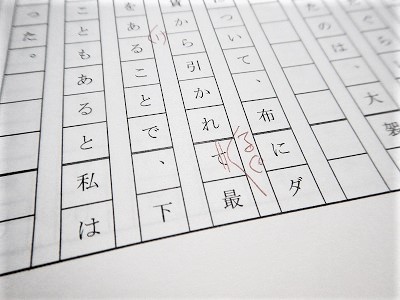 ぐら
たのは、大袈
について、布にダ
から引かれ最
をあることで、下
こともあると私は
った。